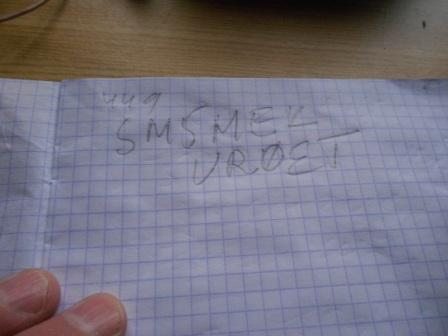 449
SMSMEK
URØET